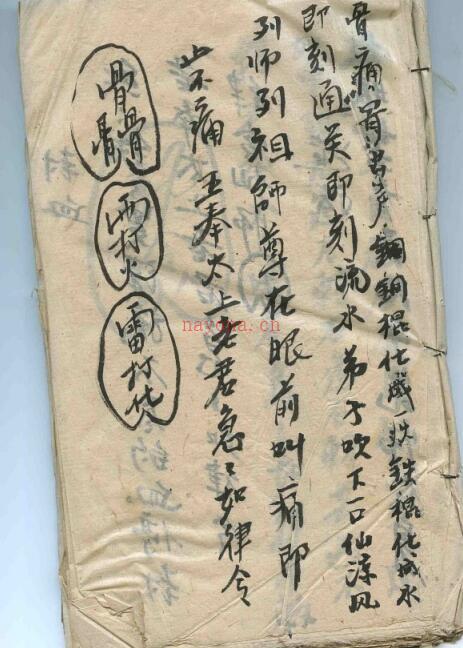 骨痛銅棍化成一鉄棍化成水
即刻通关即刻流水弟子吹下一口仙凉风
列师列祖師尊在眼前叫痛即
不痛奉太上老君急〻如律令
骨骨骨
雨打火
雷打化
nayona.cn